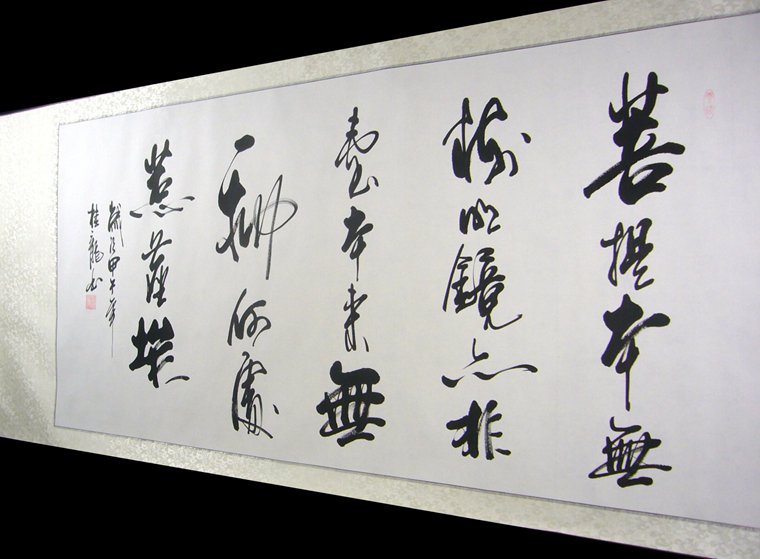 菩提本無
樹明鏡亦非
臺本來無
一物何處
惹塵埃
歲次甲午年
桂龍书